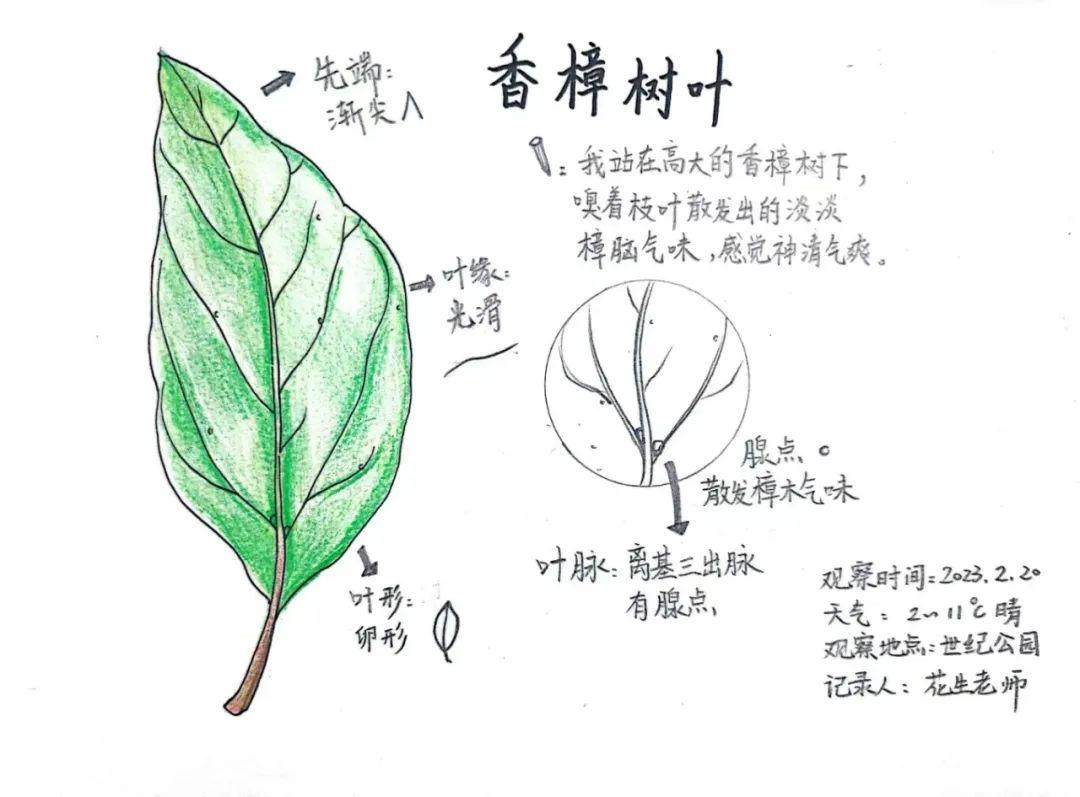 香樟树叶
先端:
渐尖∧
:我站在高大的香樟树下,
嗅着枝叶散发出的淡淡
樟脑气味,感觉神清气爽。
叶缘:
光滑
腺点。
散发樟木气味
叶脉:离基三出脉
有腺点
叶形:
卵形
观察时间:2023.2.20
天气: 2~11℃晴
观察地点:世纪公园
记录人:花生老师